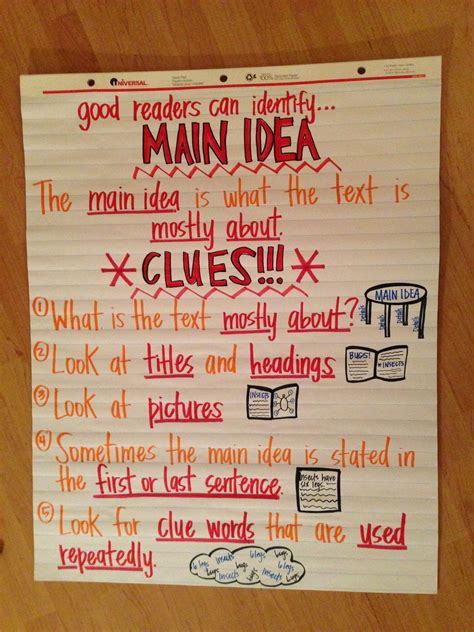 UNIVERSAL
good readers can identify...
MAIN IDEA
The main idea is what the text is
mostly about.
CLUES!!!
① What is the text mostly about?
MAIN IDEA
details details details details
② Look at titles and headings
BUGS!
INSECTS
③ Look at pictures
INSECTS
④ Sometimes the main idea is stated in
the first or last sentence.
Insects have
six legs.
⑤ Look for clue words that are used
repeatedly.
6 legs insects 6 legs bugs
bugs bugs 6 legs
6 legs insects bugs insects bugs